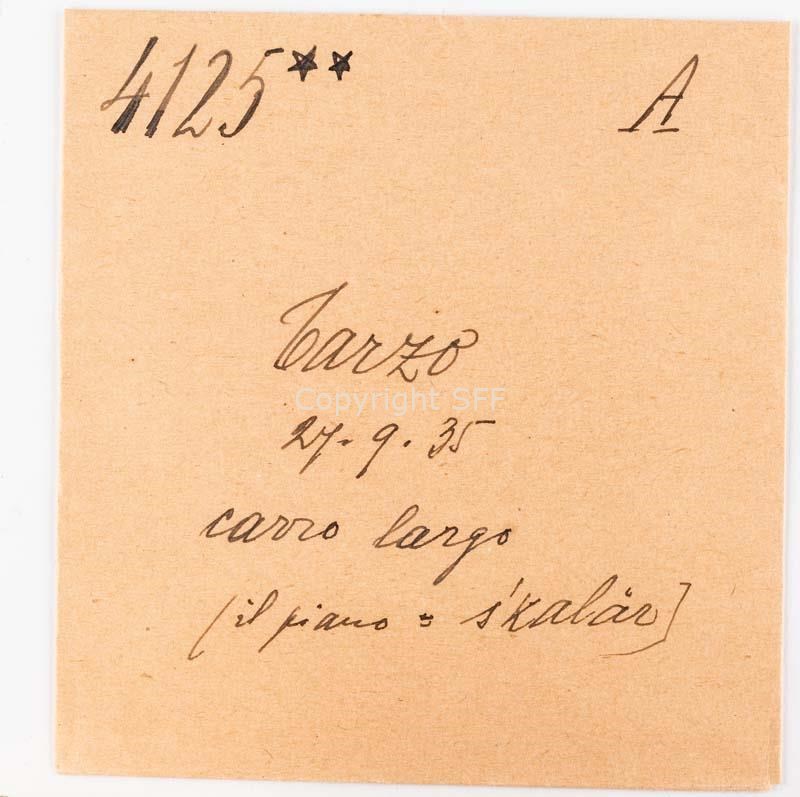 4125** A
Tarzo
Copyright SFF
27.9.35
carro largo
(il piano = s'kalár)